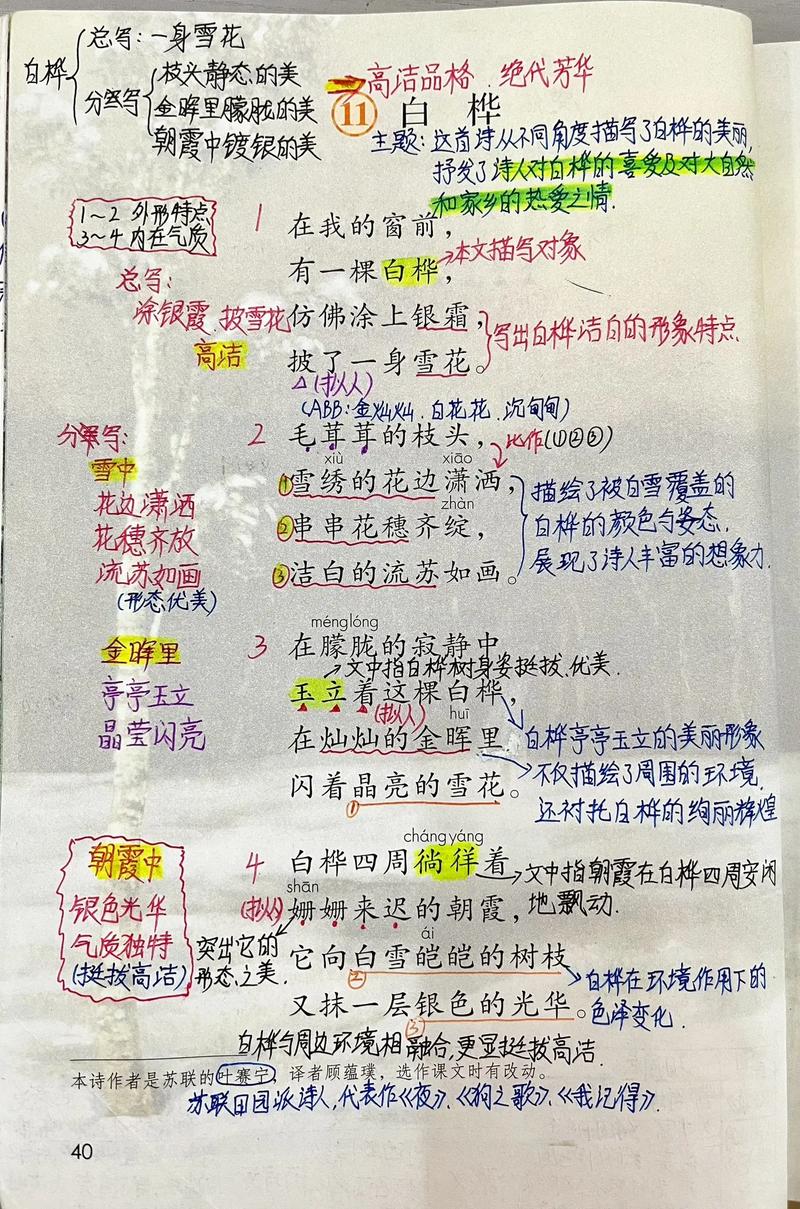 白桦
总写：一身雪花
分写
枝头静态的美
金晖里朦胧的美
朝霞中镀银的美
高洁品格、绝代芳华
11 白桦
主题：这首诗从不同角度描写了白桦的美丽，
抒发了诗人对白桦的喜爱及对大自然
和家乡的热爱之情.
1～2 外形特点
3～4 内在气质
1 在我的窗前，
有一棵白桦，
→本文描写对象
总写：
涂银霞 披雪花
高洁
仿佛涂上银霜，
披了一身雪花。
写出白桦洁白的形象特点
△(拟人)
(ABB：金灿灿、白花花、沉甸甸)
分写：
雪中
花边潇洒
花穗齐放
流苏如画
(形态优美)
2 毛茸茸的枝头，
比作(①②③)
xiù xiāo
①雪绣的花边潇洒，
zhàn
②串串花穗齐绽，
③洁白的流苏如画。
描绘了被白雪覆盖的
白桦的颜色与姿态.
展现了诗人丰富的想象力.
金晖里
亭亭玉立
晶莹闪亮
ménglóng
3 在朦胧的寂静中
→文中指白桦树身姿挺拔、优美.
玉立着这棵白桦，
(拟人) huī
在灿灿的金晖里
闪着晶亮的雪花。
①
白桦亭亭玉立的美丽形象
不仅描绘了周围的环境，
还衬托白桦的绚丽辉煌
朝霞中
银色光华
气质独特
(挺拔高洁)
chángyáng
4 白桦四周徜徉着
文中指朝霞在白桦四周安闲
地飘动.
shān
(拟人)
姗姗来迟的朝霞，
突出它的
形态之美.
ái
它向白雪皑皑的树枝
②
又抹一层银色的光华。
③
白桦在环境作用下的
色泽变化.
白桦与周边环境相融合，更显挺拔高洁.
本诗作者是苏联的叶赛宁，译者顾蕴璞，选作课文时有改动。
苏联田园派诗人，代表作《夜》、《狗之歌》、《我记得》.
40